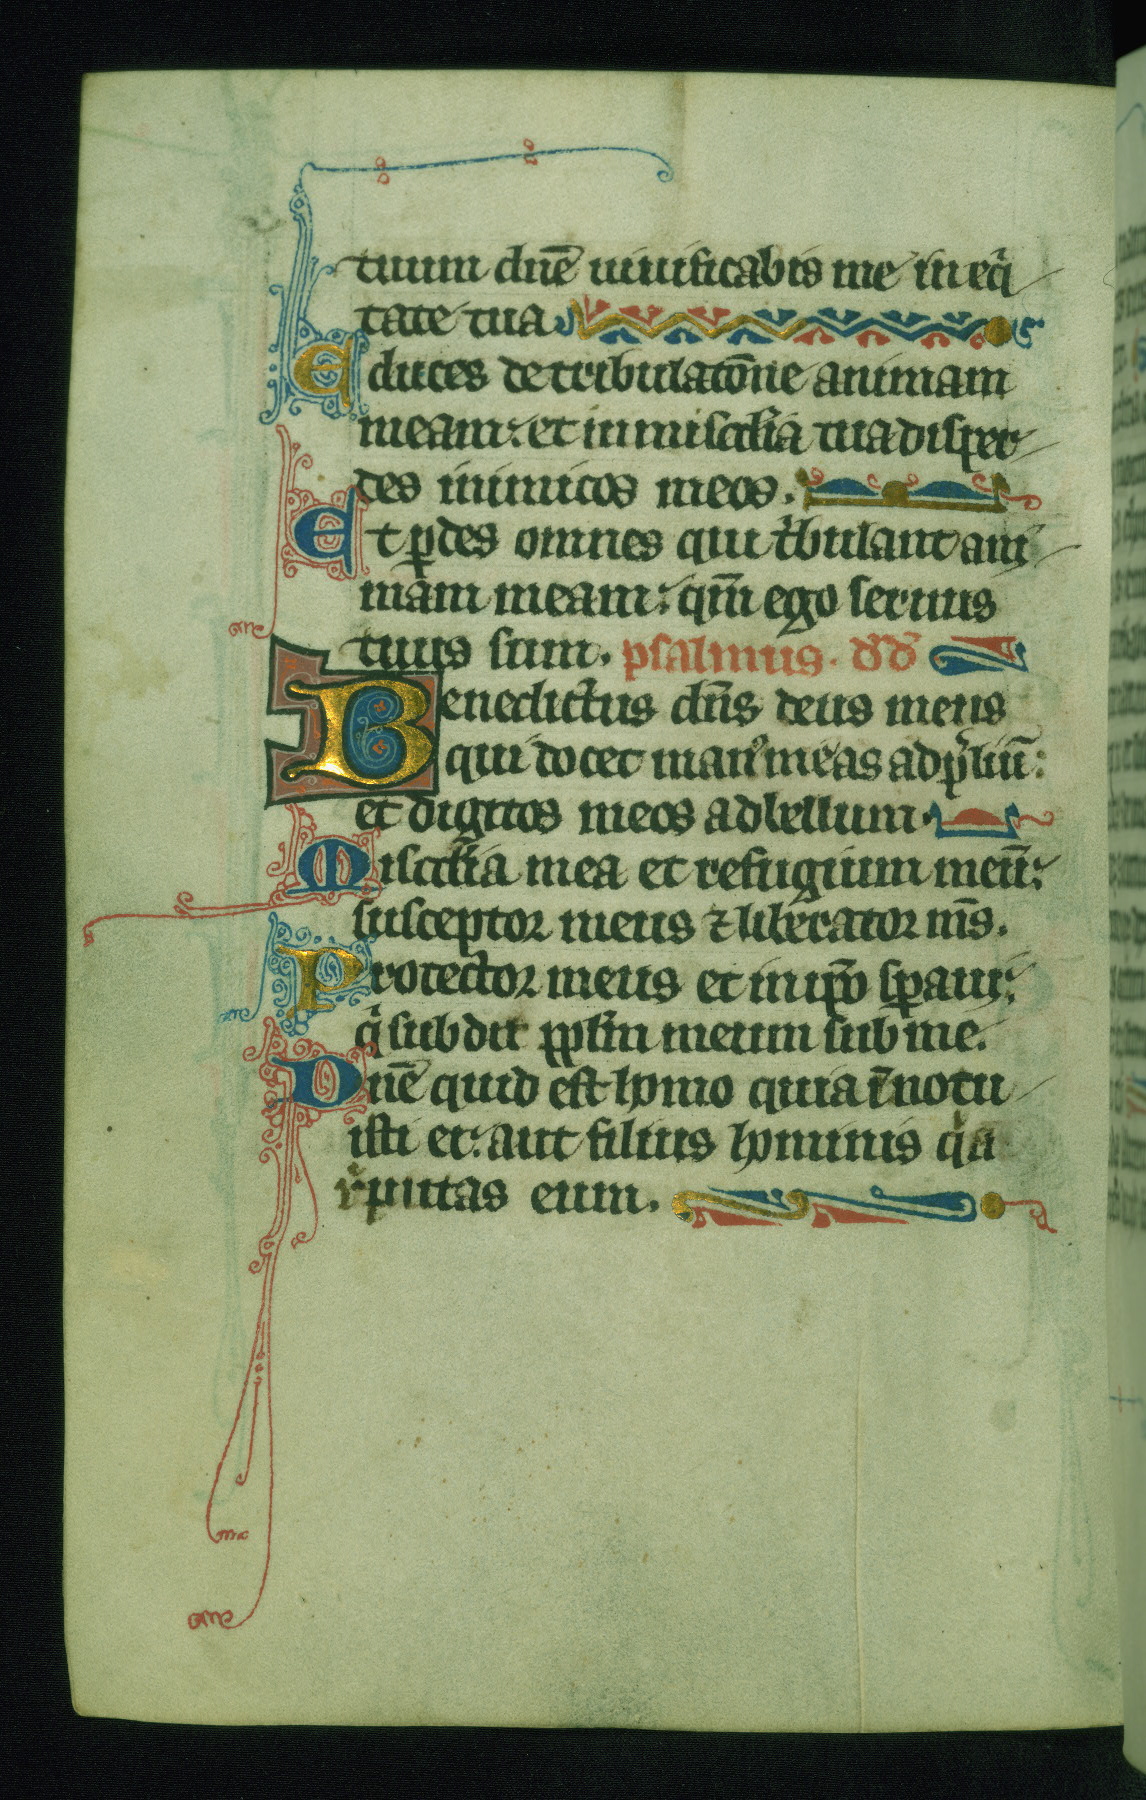 tuum dn̄e uiuificabis me in eqͥ
tate tua
Educes de tribulatōne animam
meam: et in miscd̄ia tua disper
des inimicos meos.
Et ꝑdes omnes qui tͥbulant ani
mam meam: qm̄ ego seruus
tuus sum. psalmus. dd̄
Benedictus dn̄s deus meus
qui docet manꝰ meas ad p̄liū:
et digitos meos ad bellum.
Miscd̄ia mea et refugium meū:
susceptor meus ⁊ liberator ms̄.
Protector meus et in ip̄o sꝑaui:
qͥ subdit pplm̄ meum sub me.
Dn̄e quid est homo quia īnotu
isti ei: aut filius hominis qͥa
r̄putas eum.